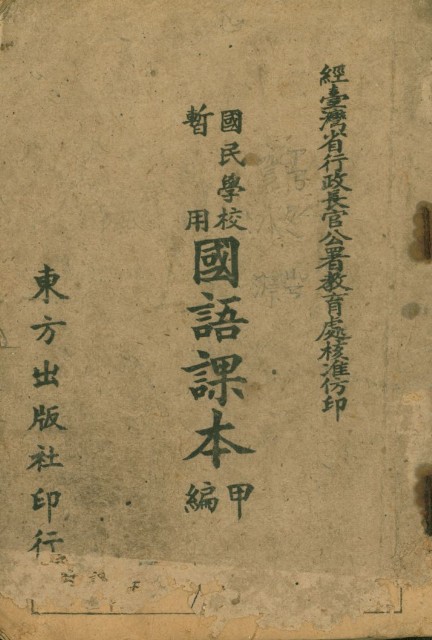 經臺灣省行政長官公署教育處核准仿印
國民學校
暫用
國語課本
甲編
東方出版社印行